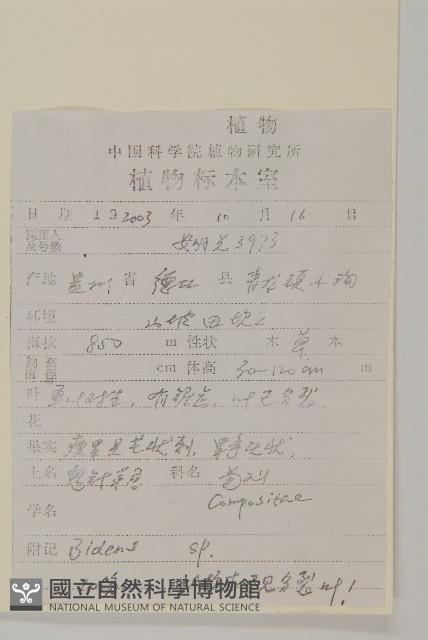 植物
中国科学院植物研究所
植物标本室
日 期 2003 年 10 月 16 日
采集人
及号数 安明先 3973
产地 贵州 省 德江 县 青龙镇
环境 山坡田坎上
海拔 850 m 性状 木 草 本
胸高
直径 cm 体高 30-120 cm m
叶 对生,有锯齿,叶
花
果实 瘦果具芒状刺,
土名 鬼针草 科名 菊科
Compositae
学名
附记 Bidens sp.
叶!
國立自然科學博物館
NATIONAL MUSEUM OF NATURAL SCIENCE